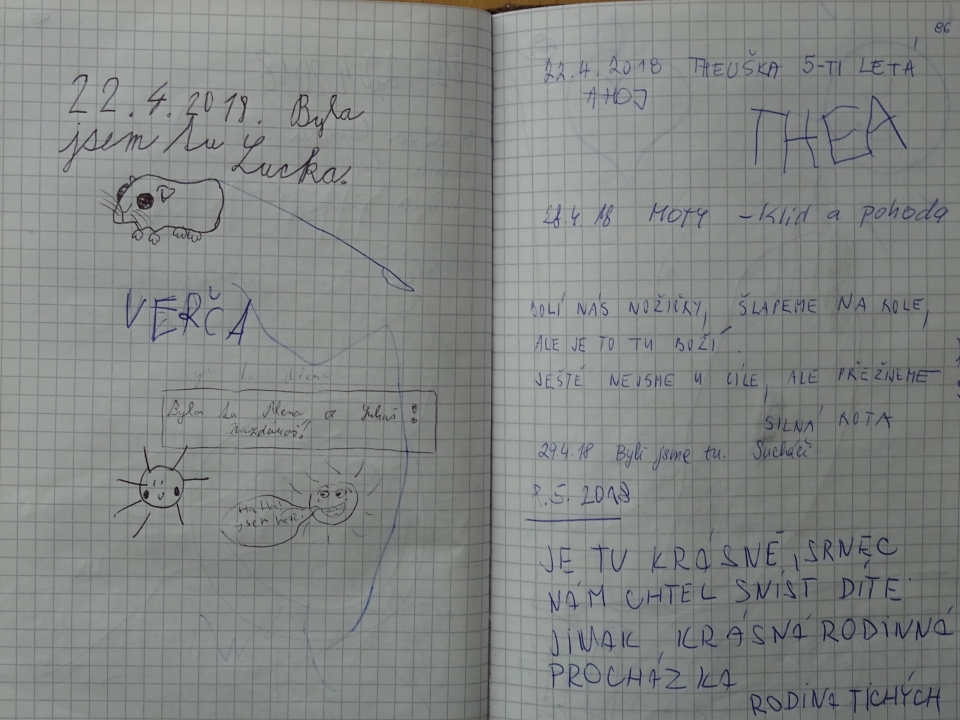 22.4.2018. Byla
jsem tu
Lucka.
VERČA
Byla tu Alena a Lukáš!
nazdááár!
Ha, ha!
jsem
86
22.4.2018 THEUŠKA 5-TI LETÁ
AHOJ
THEA
28.4.18 MOTY - Klid a pohoda
BOLÍ NÁS NOŽIČKY, ŠLAPEME NA KOLE,
ALE JE TO TU BOŽÍ
JEŠTĚ NEJSME U CÍLE, ALE PŘEŽIJEME
SILNÁ ROTA
29.4.18 Byli jsme tu. Sucháči
8.5.2018
JE TU KRÁSNĚ, SRNEC
NÁM CHTEL SNÍST DÍTĚ
JINAK KRÁSNÁ RODINNÁ
PROCHÁZKA
RODINA TICHÝCH